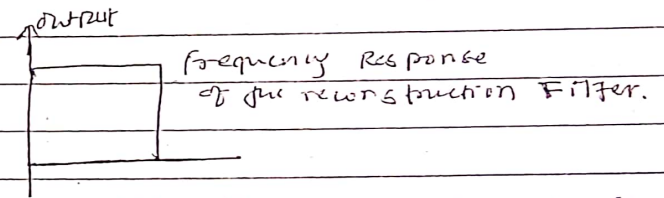 output
Frequency Response
of the reconstruction Filter.